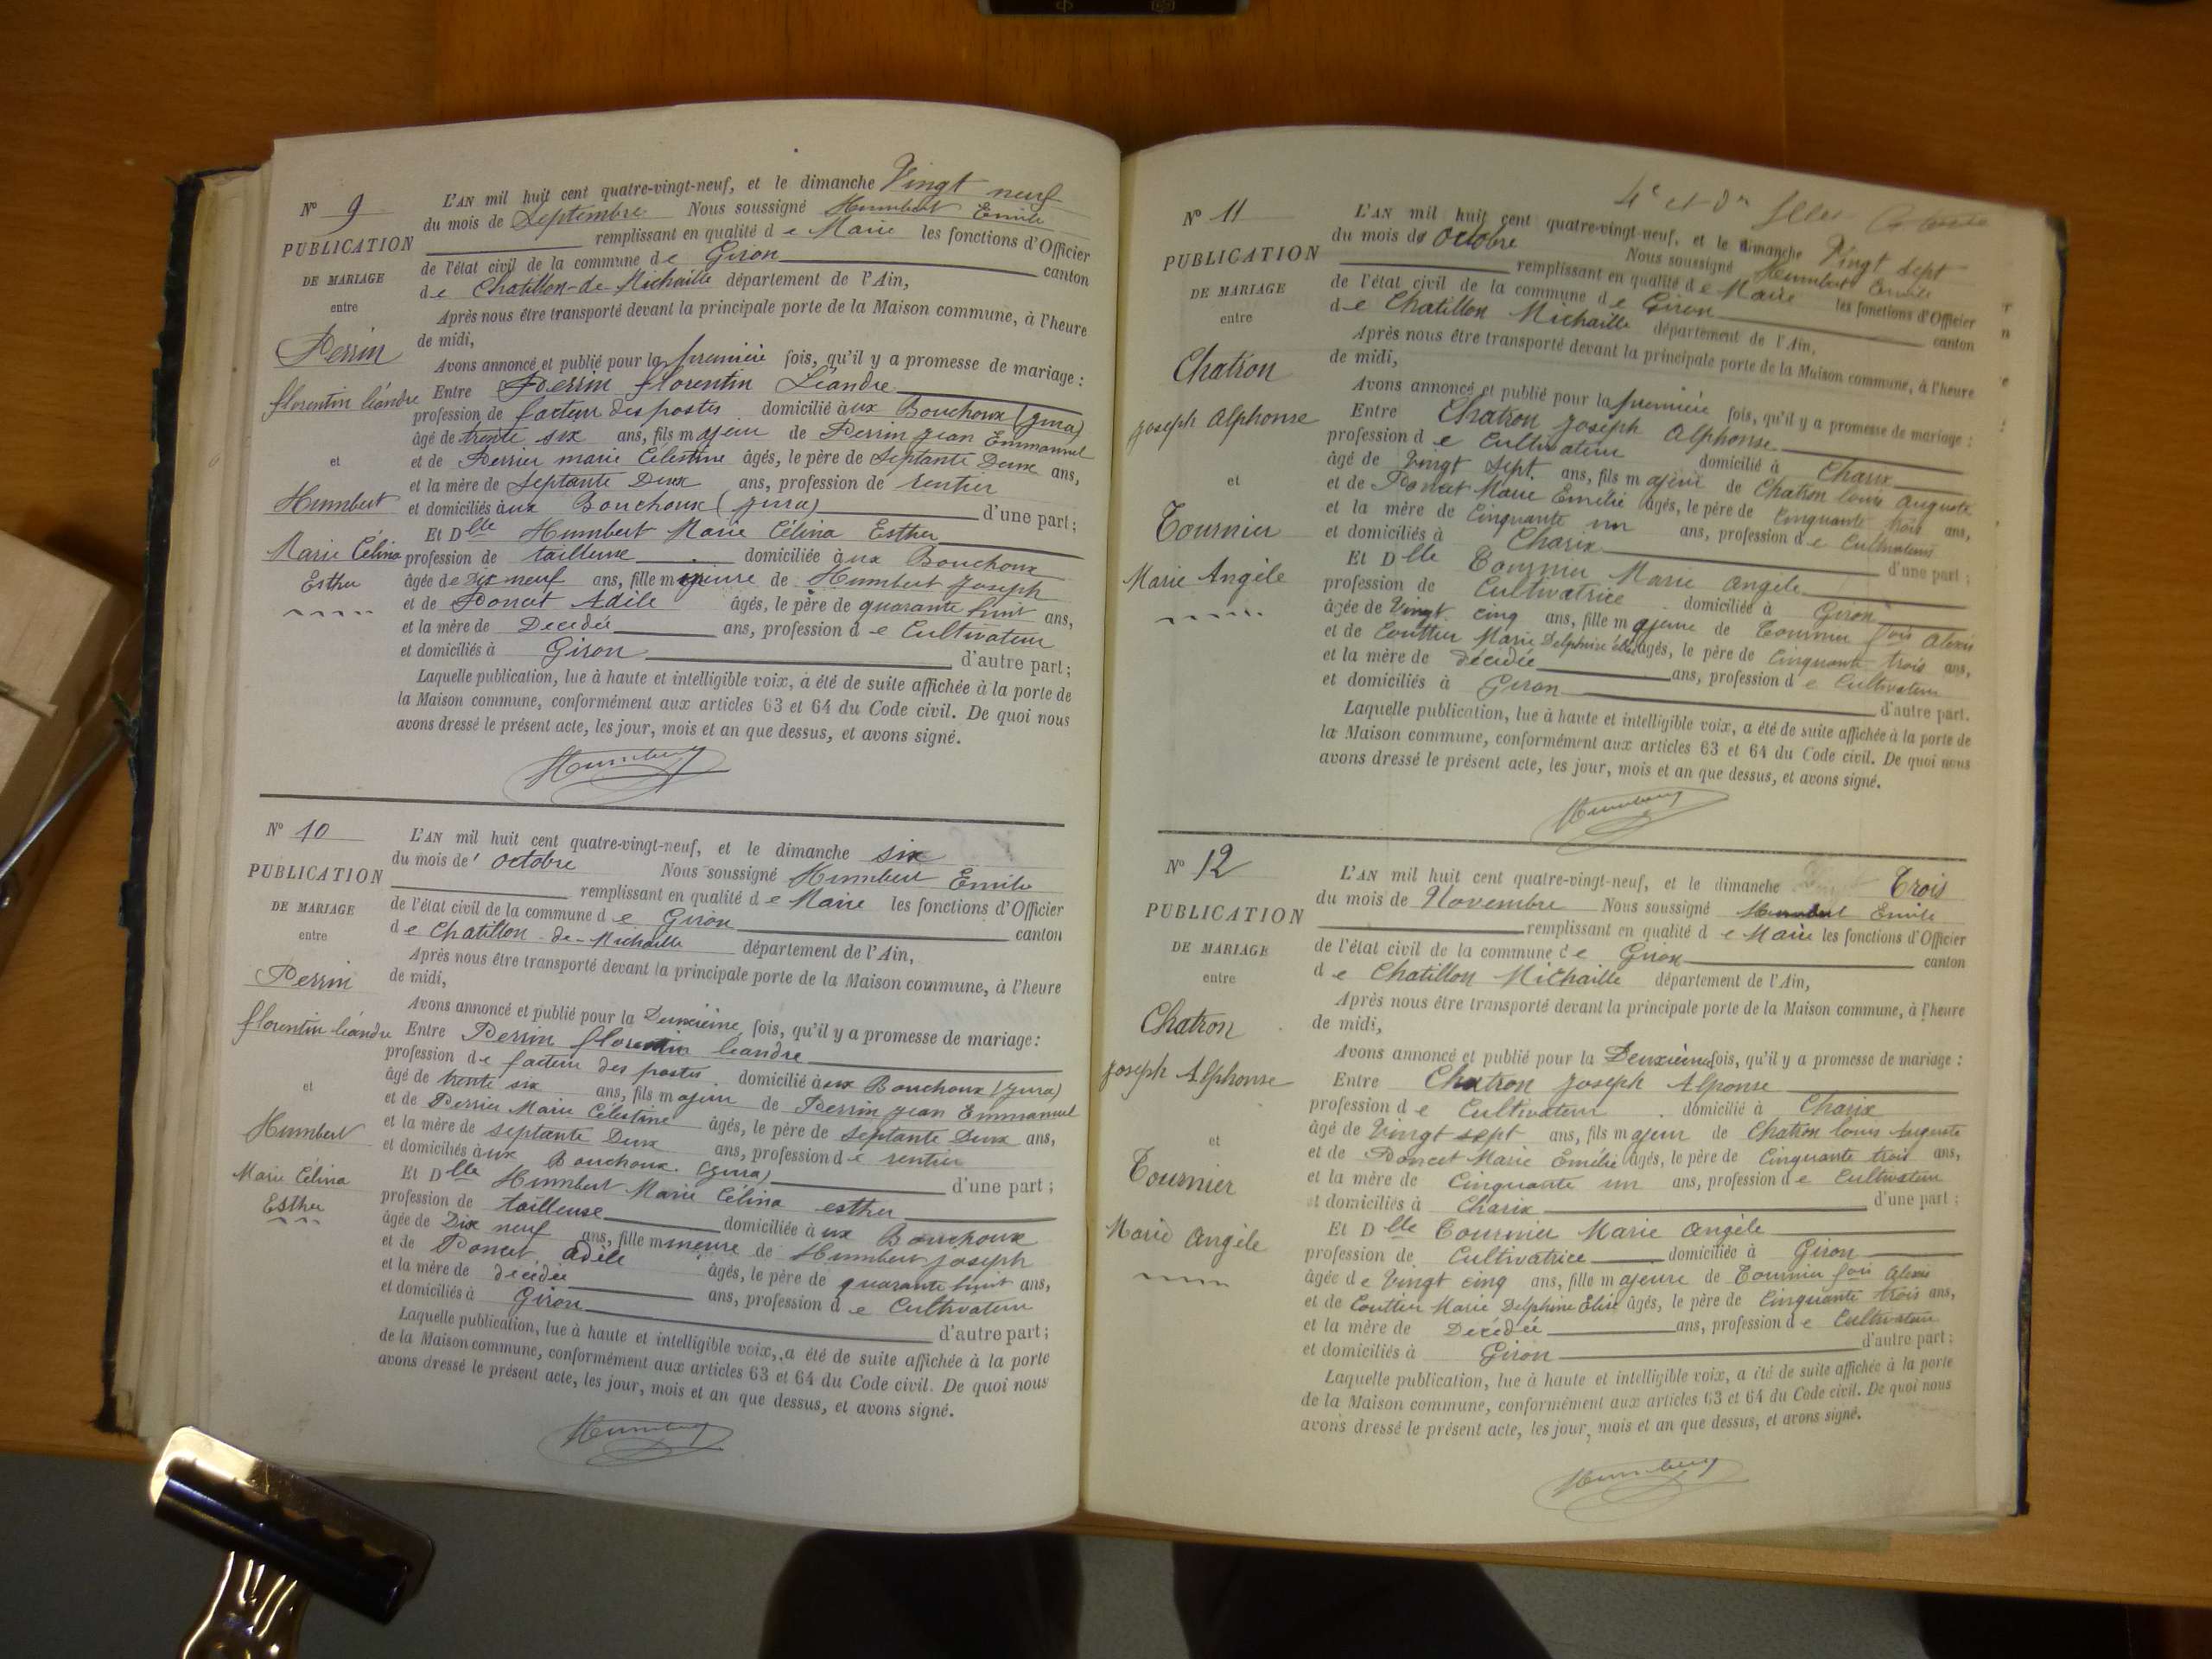 Nº 9
PUBLICATION
DE MARIAGE
entre
Perrin
florentin léandre
et
Humbert
Marie Célina
Esther
L'AN mil huit cent quatre-vingt-neuf, et le dimanche Vingt neuf
du mois de Septembre Nous soussigné Humbert Emile
remplissant en qualité de Maire les fonctions d'Officier
de l'état civil de la commune de Giron canton
de Chatillon-de-Michaille département de l'Ain,
Après nous être transporté devant la principale porte de la Maison commune, à l'heure
de midi,
Avons annoncé et publié pour la première fois, qu'il y a promesse de mariage :
Entre Perrin florentin Léandre
profession de facteur des postes domicilié aux Bouchoux (Jura)
âgé de trente six ans, fils majeur de Perrin Jean Emmanuel
et de Perrier marie Célestine âgés, le père de Septante Deux ans,
et la mère de Septante Deux ans, profession de rentier
et domiciliés aux Bouchoux (Jura) d'une part ;
Et Dlle Humbert Marie Célina Esther
profession de tailleuse domiciliée aux Bouchoux
âgée de Dix neuf ans, fille mineure de Humbert Joseph
et de Poncet Adèle âgés, le père de quarante huit ans,
et la mère de Décédée ans, profession de Cultivateur
et domiciliés à Giron d'autre part ;
Laquelle publication, lue à haute et intelligible voix, à été de suite affichée à la porte de
la Maison commune, conformément aux articles 63 et 64 du Code civil. De quoi nous
avons dressé le présent acte, les jour, mois et an que dessus, et avons signé.
Humbert
Nº 10
PUBLICATION
DE MARIAGE
entre
Perrin
florentin léandre
et
Humbert
Marie Célina
Esther
L'AN mil huit cent quatre-vingt-neuf, et le dimanche six
du mois de octobre Nous soussigné Humbert Emile
remplissant en qualité de Maire les fonctions d'Officier
de l'état civil de la commune de Giron canton
de Chatillon-de-Michaille département de l'Ain,
Après nous être transporté devant la principale porte de la Maison commune, à l'heure
de midi,
Avons annoncé et publié pour la Deuxième fois, qu'il y a promesse de mariage :
Entre Perrin florentin léandre
profession de facteur des postes domicilié aux Bouchoux (Jura)
âgé de trente six ans, fils majeur de Perrin Jean Emmanuel
et de Perrier Marie Célestine âgés, le père de Septante Deux ans,
et la mère de septante Deux ans, profession de rentier
et domiciliés aux Bouchoux (Jura) d'une part ;
Et Dlle Humbert Marie Célina esther
profession de tailleuse domiciliée aux Bouchoux
âgée de Dix neuf ans, fille mineure de Humbert joseph
et de Poncet adèle âgés, le père de quarante huit ans,
et la mère de décédée ans, profession de Cultivateur
et domiciliés à Giron d'autre part ;
Laquelle publication, lue à haute et intelligible voix, a été de suite affichée à la porte
de la Maison commune, conformément aux articles 63 et 64 du Code civil. De quoi nous
avons dressé le présent acte, les jour, mois et an que dessus, et avons signé.
Humbert
4e et
Nº 11
PUBLICATION
DE MARIAGE
entre
Chatron
Joseph Alphonse
et
Tournier
Marie Angèle
L'AN mil huit cent quatre-vingt-neuf, et le dimanche Vingt sept
du mois de Octobre Nous soussigné Humbert Emile
remplissant en qualité de Maire les fonctions d'Officier
de l'état civil de la commune de Giron canton
de Chatillon Michaille département de l'Ain,
Après nous être transporté devant la principale porte de la Maison commune, à l'heure
de midi,
Avons annoncé et publié pour la première fois, qu'il y a promesse de mariage :
Entre Chatron Joseph Alphonse
profession de Cultivateur domicilié à Charix
âgé de Vingt sept ans, fils majeur de Chatron louis Auguste
et de Poncet Marie Emélie âgés, le père de Cinquante trois ans,
et la mère de Cinquante un ans, profession de Cultivateur
et domiciliés à Charix d'une part ;
Et Dlle Tournier Marie Angèle
profession de Cultivatrice domiciliée à Giron
âgée de Vingt cinq ans, fille majeure de Tournier fois Alexis
et de Couttier Marie Delphine élise âgés, le père de Cinquante trois ans,
et la mère de Décédée ans, profession de Cultivateur
et domiciliés à Giron d'autre part.
Laquelle publication, lue à haute et intelligible voix, a été de suite affichée à la porte de
la Maison commune, conformément aux articles 63 et 64 du Code civil. De quoi nous
avons dressé le présent acte, les jour, mois et an que dessus, et avons signé.
Humbert
Nº 12
PUBLICATION
DE MARIAGE
entre
Chatron
Joseph Alphonse
et
Tournier
Marie Angèle
L'AN mil huit cent quatre-vingt-neuf, et le dimanche Trois
du mois de Novembre Nous soussigné Humbert Emile
remplissant en qualité de Maire les fonctions d'Officier
de l'état civil de la commune de Giron canton
de Chatillon Michaille département de l'Ain,
Après nous être transporté devant la principale porte de la Maison commune, à l'heure
de midi,
Avons annoncé et publié pour la Deuxième fois, qu'il y a promesse de mariage :
Entre Chatron Joseph Alponse
profession de Cultivateur domicilié à Charix
âgé de Vingt sept ans, fils majeur de Chatron louis Auguste
et de Poncet Marie Emélie âgés, le père de Cinquante trois ans,
et la mère de Cinquante un ans, profession de Cultivateur
et domiciliés à Charix d'une part ;
Et Dlle Tournier Marie Angèle
profession de Cultivatrice domiciliée à Giron
âgée de Vingt cinq ans, fille majeure de Tournier fois Alexis
et de Couttier Marie Delphine Elise âgés, le père de Cinquante trois ans,
et la mère de Décédée ans, profession de Cultivateur
et domiciliés à Giron d'autre part ;
Laquelle publication, lue à haute et intelligible voix, a été de suite affichée à la porte
de la Maison commune, conformément aux articles 63 et 64 du Code civil. De quoi nous
avons dressé le présent acte, les jour, mois et an que dessus, et avons signé.
Humbert